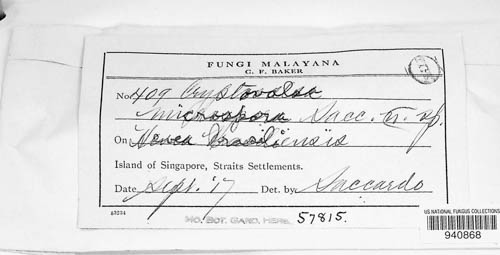 FUNGI MALAYANA
C. F. BAKER
No. 409 Cryptovalsa
microspora Sacc. n. sp.
On Hevea brasiliensis
Island of Singapore, Straits Settlements.
Date Sept. '17 Det. by Saccardo
MO. BOT. GARD. HERB. 57815.
US NATIONAL FUNGUS COLLECTIONS
940868